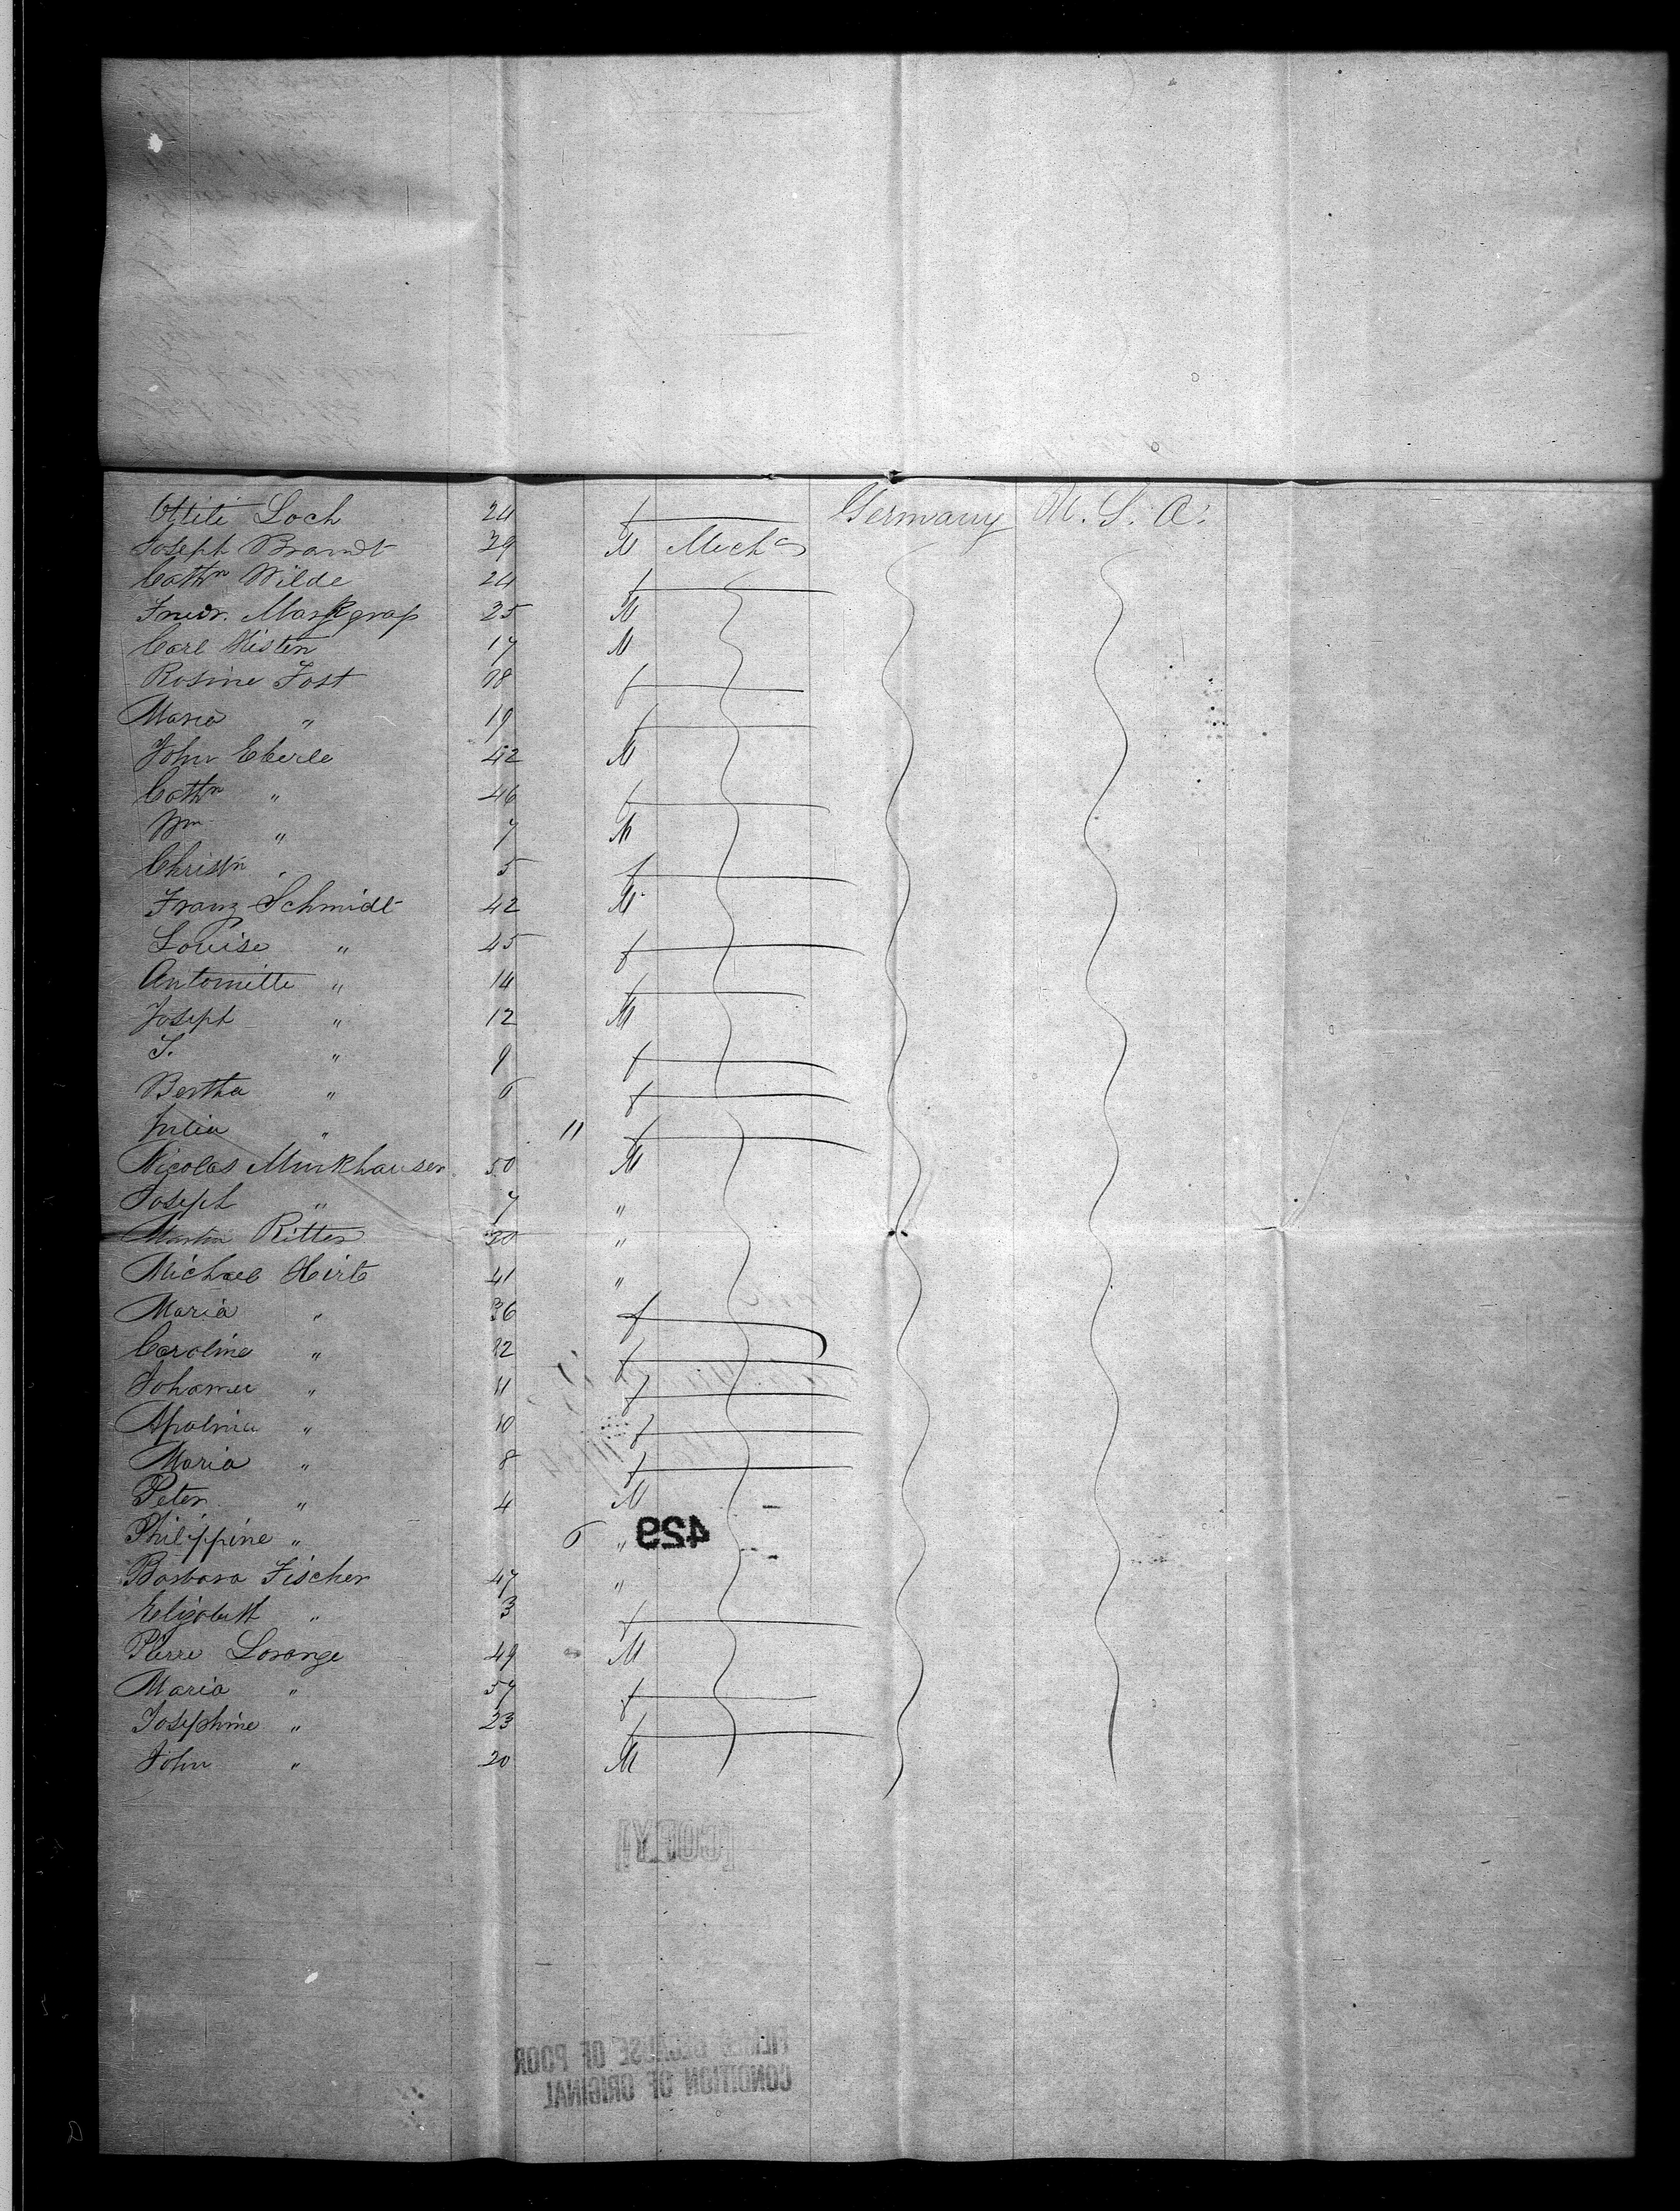 Ottili Loch 24 f Germany U. S. A.
Joseph Brandt 29 M Mech
Cathn Wilde 24 f
Friedr. Markgraf 25 M
Carl Kisten 17 M
Rosine Jost 18 f
Maria " 19 f
John Eberle 42 M
Cathn " 46 f
Wm " 7 M
Christn " 5 f
Franz Schmidt 42 M
Louise " 45 f
Antoinette " 14 f
Joseph " 12 M
T. " 9 f
Bertha " 6 f
Julia " 11 f
Nicolas Munkhauser 50 M
Joseph " 7 "
Martin Ritter 30 "
Michael Hirts 41 "
Maria " 36 f
Caroline " 12 f
Johanna " 11 f
Apolonia " 10 f
Maria " 8 f
Peter " 4 M
Philippine " 6 "
429
Barbara Fischer 47 "
Elizabeth " 3 f
Pierre Lorange 49 M
Maria " 57 f
Josephine " 23 f
John " 20 M
[COPY]
FILMED BECAUSE OF POOR
CONDITION OF ORIGINAL